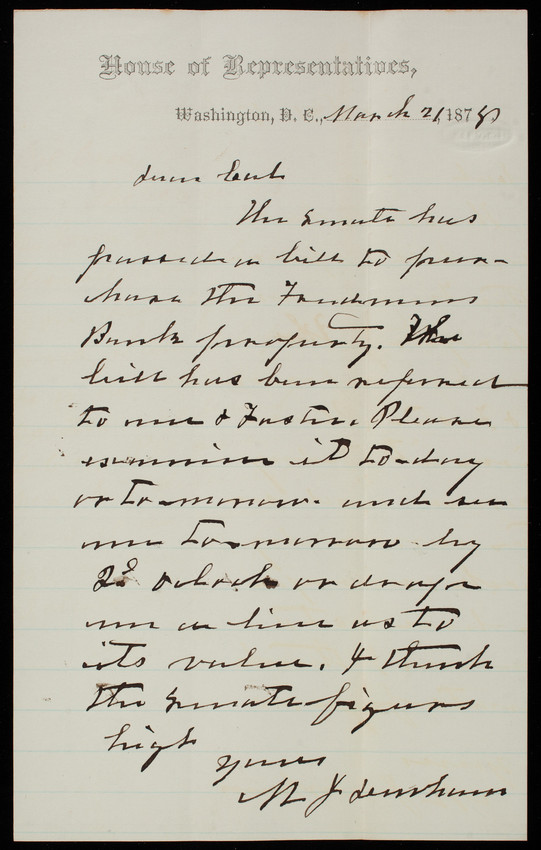 House of Representatives,
Washington, D. C., March 21, 1878
dear Carl
The Senate has
passed a bill to pur-
chase the Freedmens
Bank property. The
bill has been referred
to me & Foster. Please
examine it to-day
or to-morrow. and see
me to-morrow by
2 Oclock or drop
me a line as to
its value. I think
the Senate figures
high
yours
M J durham